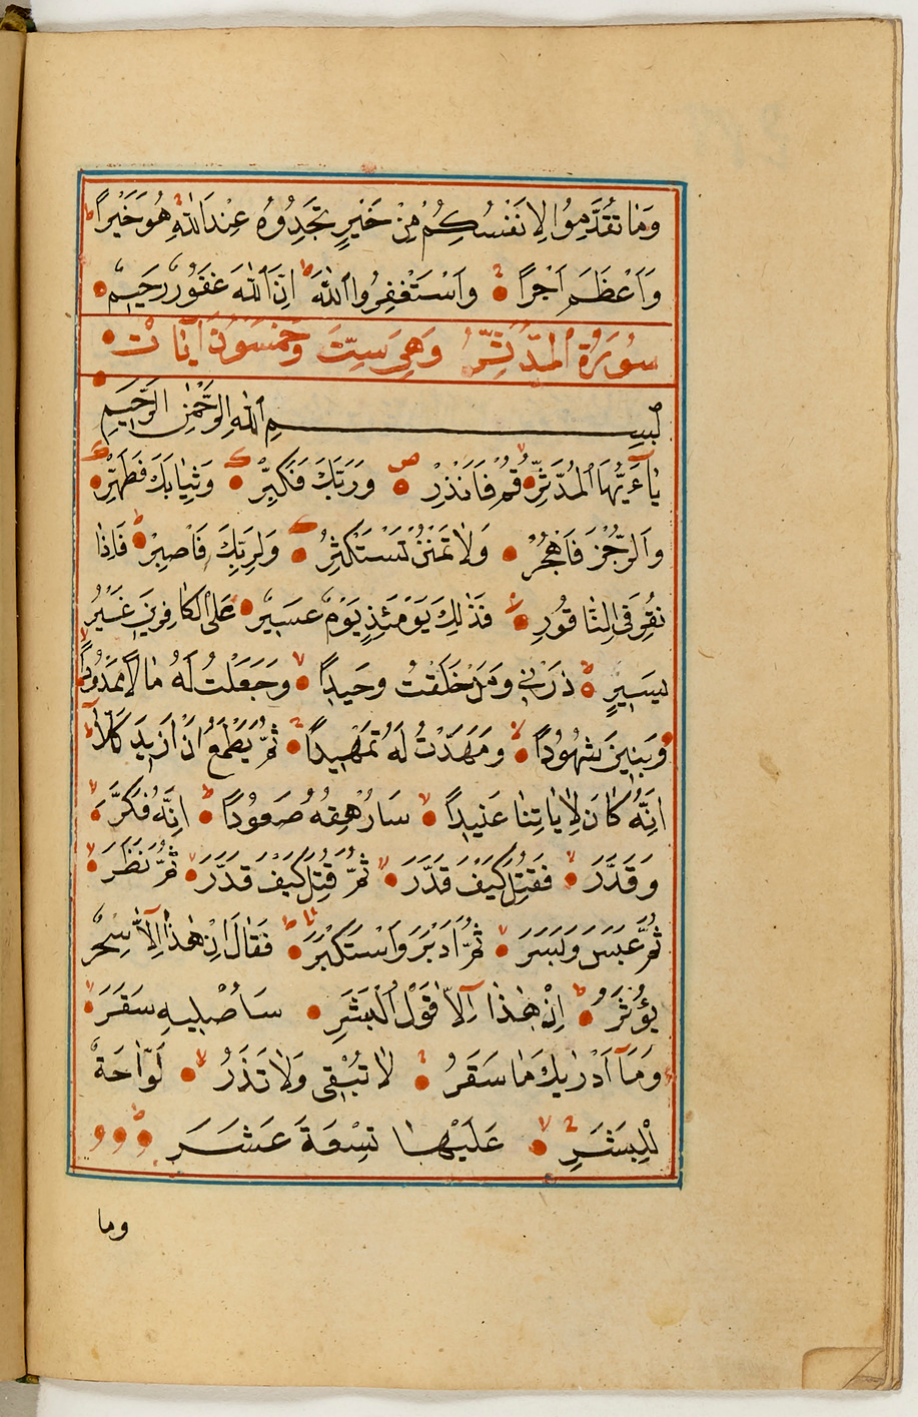 وَمَا تُقَدِّمُوا لِاَنْفُسِكُمْ مِنْ خَيْرٍ تَجِدُوهُ عِنْدَ اللّٰهِ هُوَ خَيْرًا
وَاَعْظَمَ اَجْرًا وَاسْتَغْفِرُوا اللّٰهَ اِنَّ اللّٰهَ غَفُورٌ رَحِيمٌ
سُورَةُ الْمُدَّثِّرُ وَهِيَ سِتَّ وَخَمْسُونَ آيَاتٌ
بِسْمِ اللّٰهِ الرَّحْمٰنِ الرَّحِيمِ
يَٓا اَيُّهَا الْمُدَّثِّرُ قُمْ فَاَنْذِرْ وَرَبَّكَ فَكَبِّرْ وَثِيَابَكَ فَطَهِّرْ
وَالرُّجْزَ فَاهْجُرْ وَلَا تَمْنُنْ تَسْتَكْثِرُ وَلِرَبِّكَ فَاصْبِرْ فَاِذَا
نُقِرَ فِي النَّاقُورِ فَذٰلِكَ يَوْمَئِذٍ يَوْمٌ عَسِيرٌ عَلَى الْكَافِرِينَ غَيْرُ
يَسِيرٍ ذَرْنِي وَمَنْ خَلَقْتُ وَحِيدًا وَجَعَلْتُ لَهُ مَالًا مَمْدُودًا
وَبَنِينَ شُهُودًا وَمَهَّدْتُ لَهُ تَمْهِيدًا ثُمَّ يَطْمَعُ اَنْ اَزِيدَ كَلَّا
اِنَّهُ كَانَ لِاٰيَاتِنَا عَنِيدًا سَاُرْهِقُهُ صَعُودًا اِنَّهُ فَكَّرَ
وَقَدَّرَ فَقُتِلَ كَيْفَ قَدَّرَ ثُمَّ قُتِلَ كَيْفَ قَدَّرَ ثُمَّ نَظَرَ
ثُمَّ عَبَسَ وَبَسَرَ ثُمَّ اَدْبَرَ وَاسْتَكْبَرَ فَقَالَ اِنْ هٰذَا اِلَّا سِحْرٌ
يُؤْثَرُ اِنْ هٰذَا اِلَّا قَوْلُ الْبَشَرِ سَاُصْلِيهِ سَقَرَ
وَمَٓا اَدْرٰيكَ مَا سَقَرُ لَا تُبْقِي وَلَا تَذَرُ لَوَّاحَةٌ
لِلْبَشَرِ عَلَيْهَا تِسْعَةَ عَشَرَ
وما